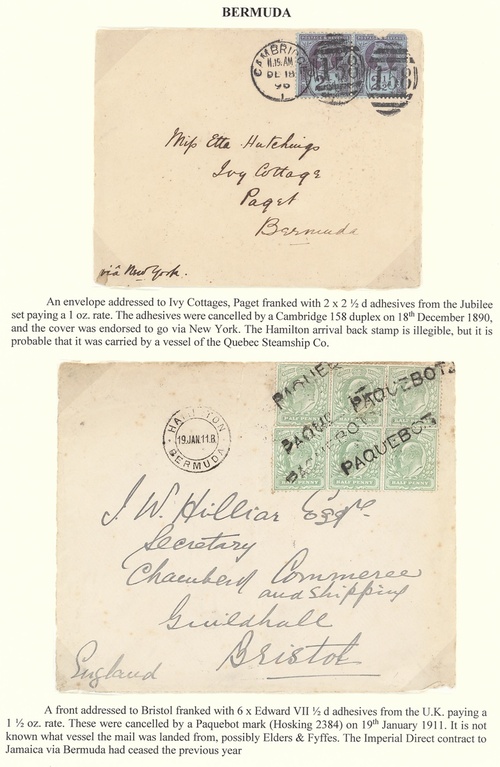 BERMUDA
CAMBRIDGE
11.15.AM
DE 18
96
1
158
158
Miss Etta Hutchings
Ivy Cottage
Paget
Bermuda
via New York.
An envelope addressed to Ivy Cottages, Paget franked with 2 x 2 ½ d adhesives from the Jubilee
set paying a 1 oz. rate. The adhesives were cancelled by a Cambridge 158 duplex on 18th December 1890,
and the cover was endorsed to go via New York. The Hamilton arrival back stamp is illegible, but it is
probable that it was carried by a vessel of the Quebec Steamship Co.
PAQUEBOT
PAQUEBOT
PAQUEBOT
PAQUEBOT
HALF PENNY
HALF PENNY
HALF PENNY
HAMILTON
19.JAN.11.B
BERMUDA
J. W. Hilliar Esqre.
Secretary
Chamber of Commerce
and Shipping
Guildhall
Bristol
England
A front addressed to Bristol franked with 6 x Edward VII ½ d adhesives from the U.K. paying a
1 ½ oz. rate. These were cancelled by a Paquebot mark (Hosking 2384) on 19th January 1911. It is not
known what vessel the mail was landed from, possibly Elders & Fyffes. The Imperial Direct contract to
Jamaica via Bermuda had ceased the previous year